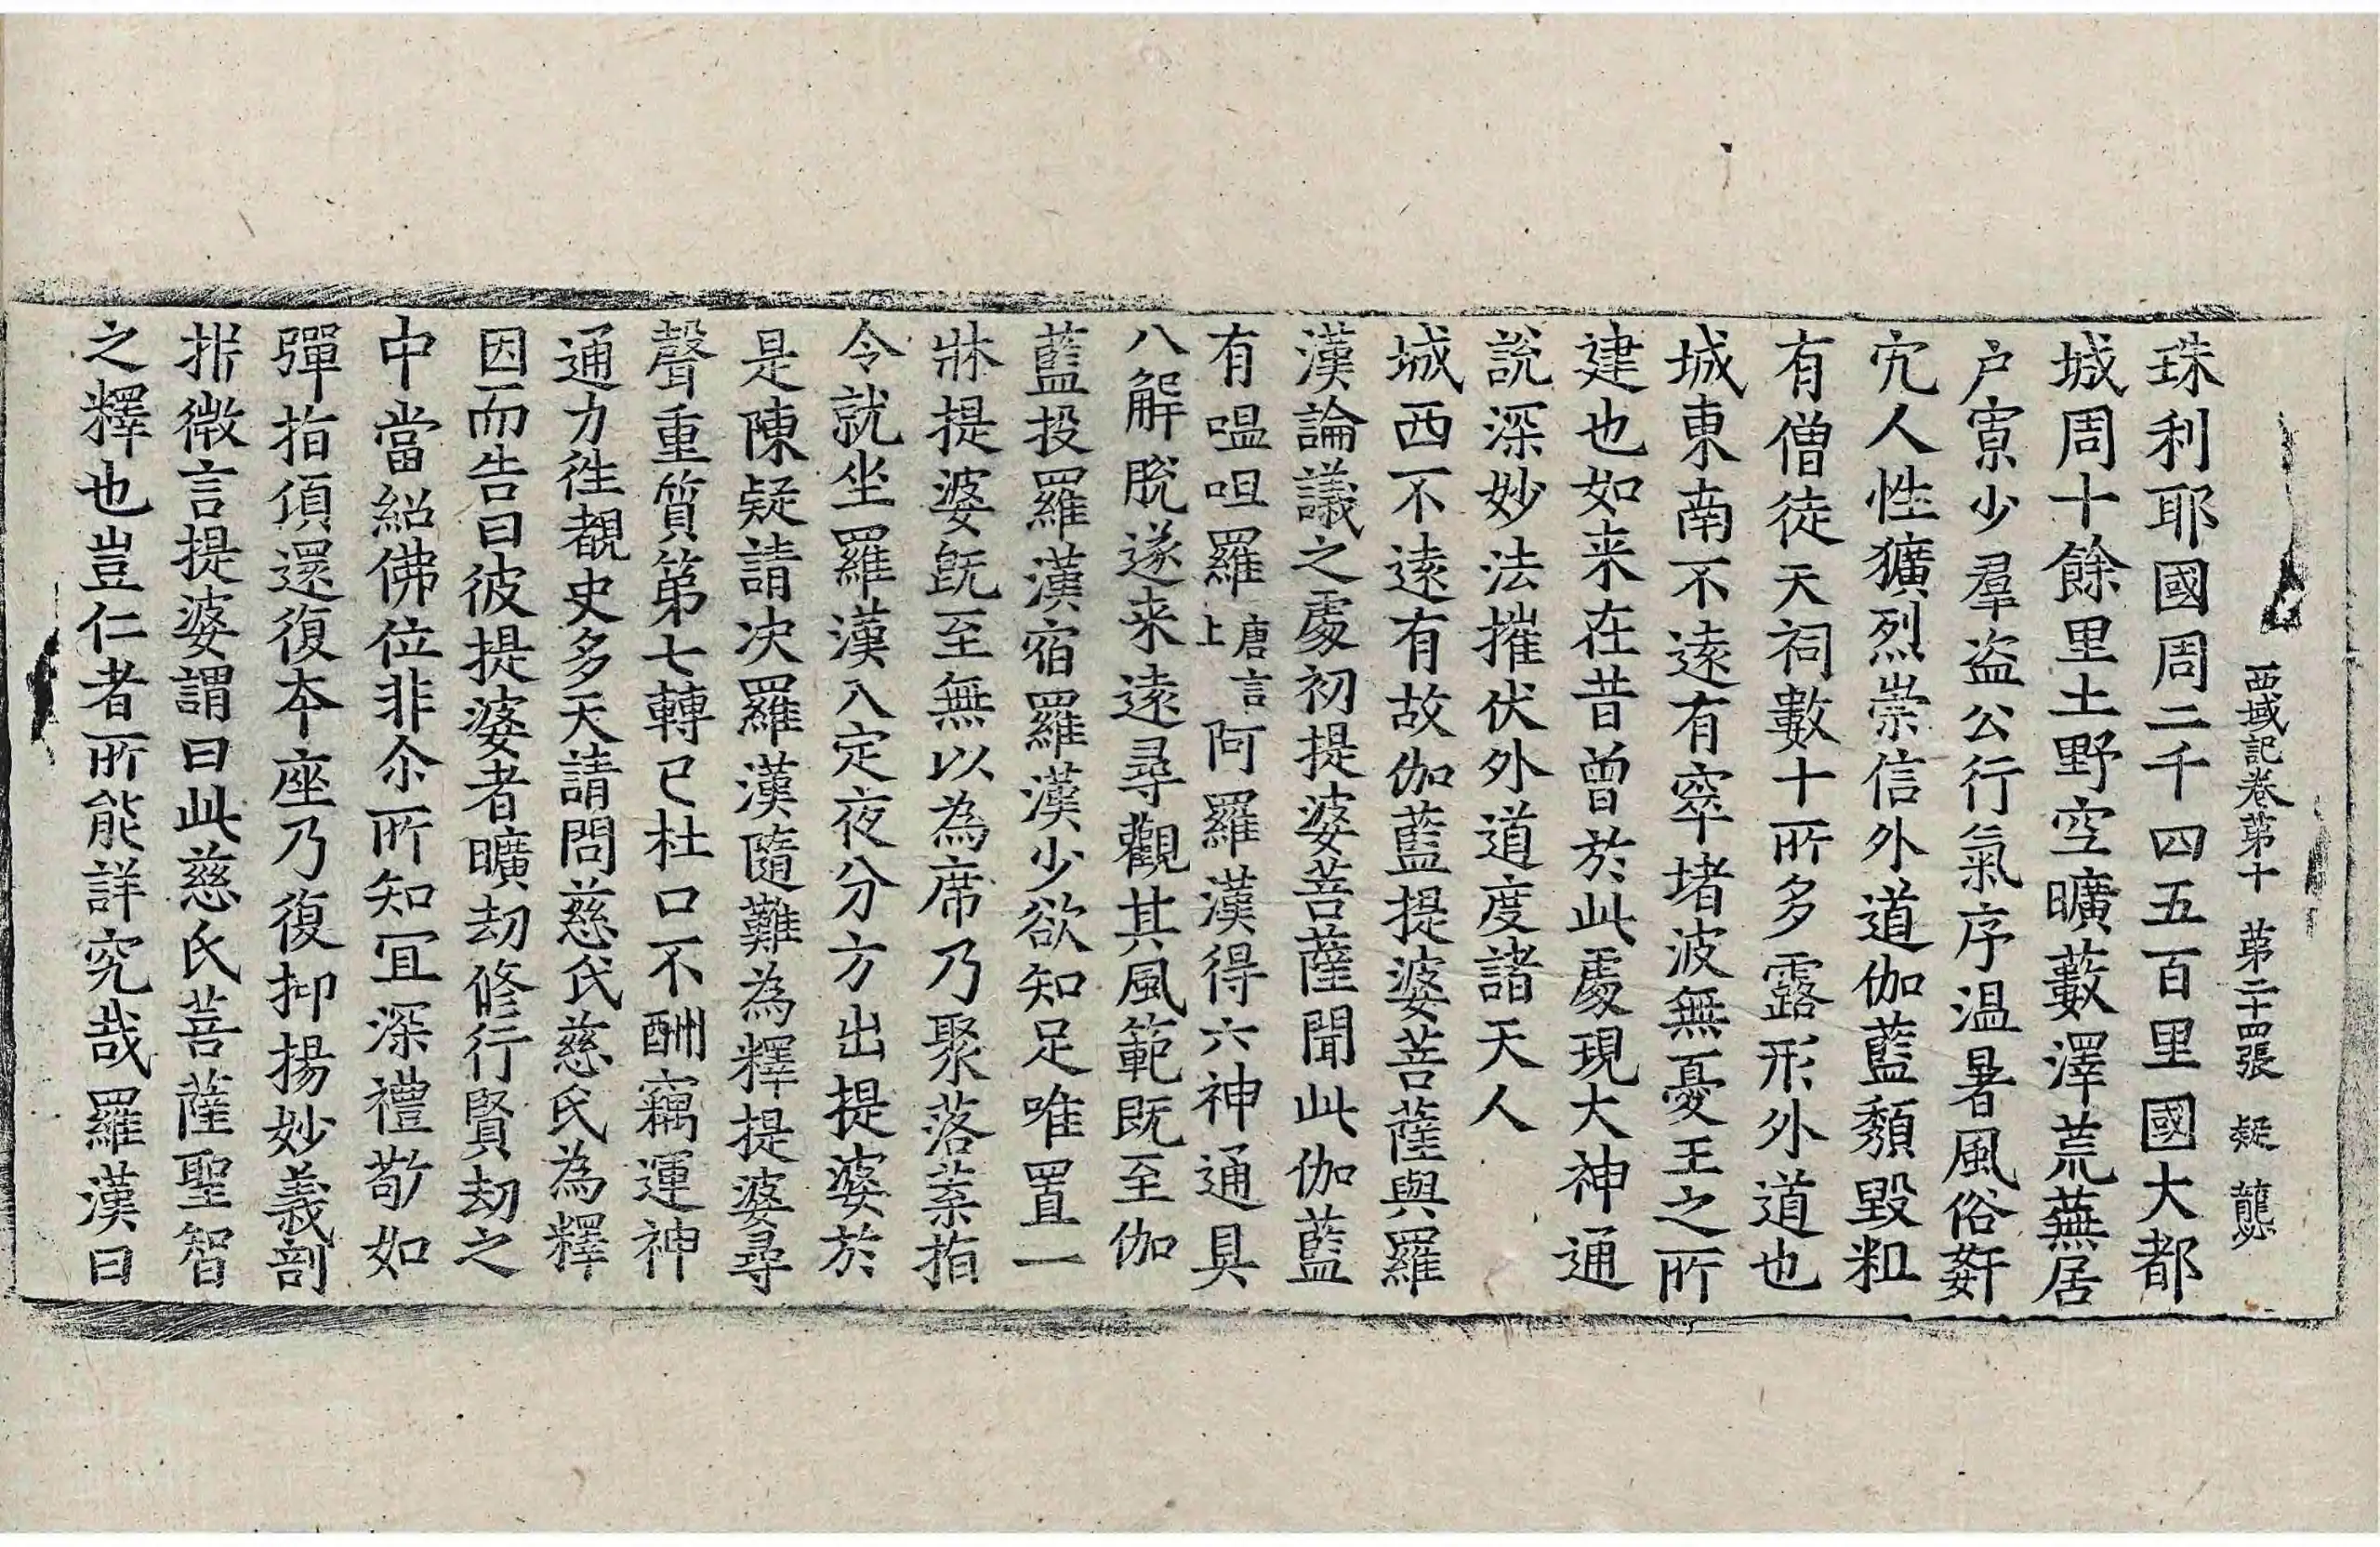 西域記卷第十 第二十四張 疑 龔
珠利耶國周二千四五百里國大都
城周十餘里土野空曠藪澤荒蕪居
户寡少羣盗公行氣序温暑風俗姧
宄人性獷烈崇信外道伽藍頽毀粗
有僧徒天祠數十所多露形外道也
城東南不逺有窣堵波無憂王之所
建也如来在昔曽於此處現大神通
說深妙法摧伏外道度諸天人
城西不逺有故伽藍提婆菩薩與羅
漢論議之處初提婆菩薩聞此伽藍
有嗢呾羅唐言上阿羅漢得六神通具
八解脫遂来逺尋觀其風範既至伽
藍投羅漢宿羅漢少欲知足唯置一
牀提婆既至無以為席乃聚落葉指
令就坐羅漢入定夜分方出提婆於
是陳疑請决羅漢隨難為釋提婆尋
聲重質第七轉已杜口不酬竊運神
通力徃覩史多天請問慈氏慈氏為釋
因而告曰彼提婆者曠劫修行賢劫之
中當紹佛位非尒所知冝深禮敬如
彈指頃還復本座乃復抑揚妙義剖
㭊微言提婆謂曰此慈氏菩薩聖智
之釋也豈仁者所能詳究哉羅漢曰